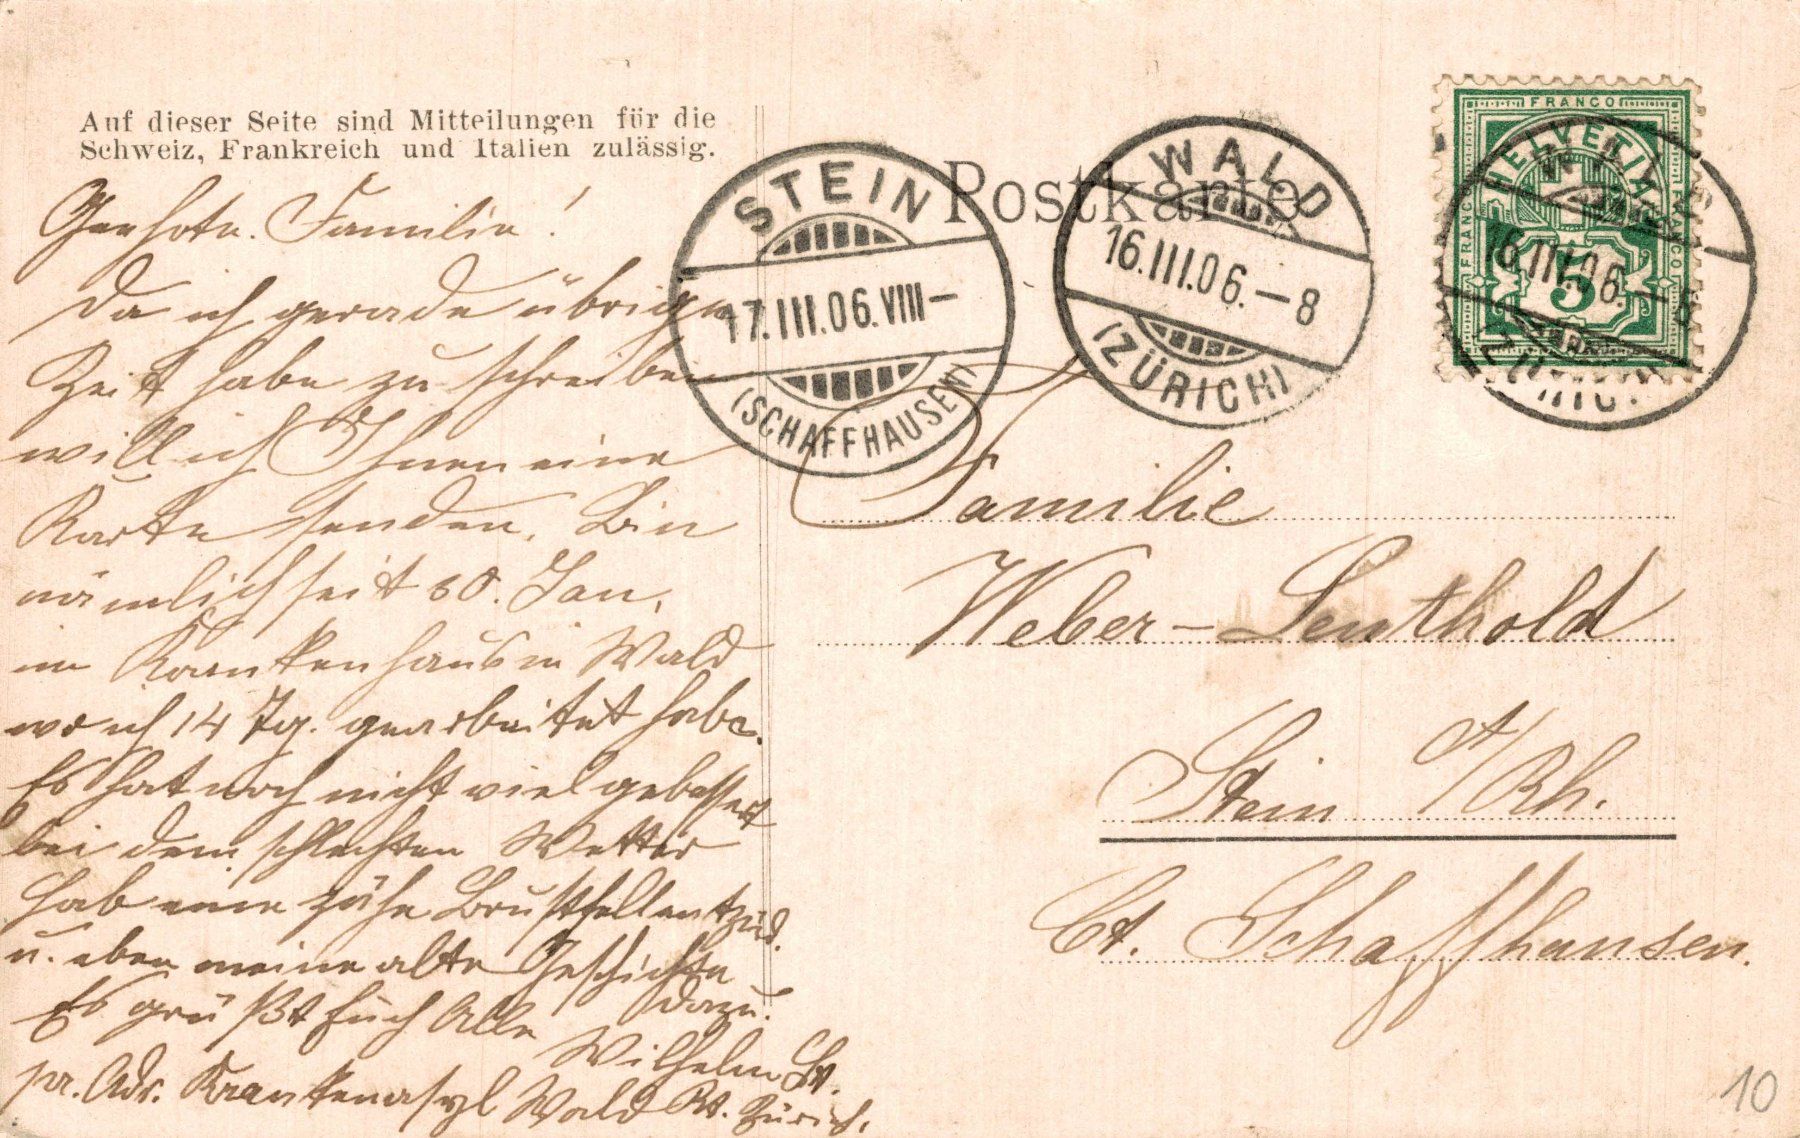 Auf dieser Seite sind Mitteilungen für die
Schweiz, Frankreich und Italien zulässig.
Postkarte
STEIN
17.III.06.VIII–
(SCHAFFHAUSEN)
WALD
16.III.06.–8
(ZÜRICH)
FRANCO
HELVETIA
FRANCO
FRANCO
5
WALD
16.III.06.–8
(ZÜRICH)
Geehrte. Familie!
Da ich gerade übrige
Zeit habe zu schreiben
will ich Ihnen eine
Karte senden, Bin
nämlich seit 30. Jan.
im Krankenhaus in Wald
wo ich 14 Tg. gearbeitet habe.
Es hat noch nicht viel gebessert
bei dem schlechten Wetter
hab eine zähe Brustfellentzünd.
u. eben meine alte Geschichte
dazu.
Es grüßt Euch Alle
Wilhelm
pr. Adr. Krankenasyl Wald Kt. Zürich.
Familie
Weber–Leuthold
Stein a/Rh.
Ct. Schaffhausen.
10